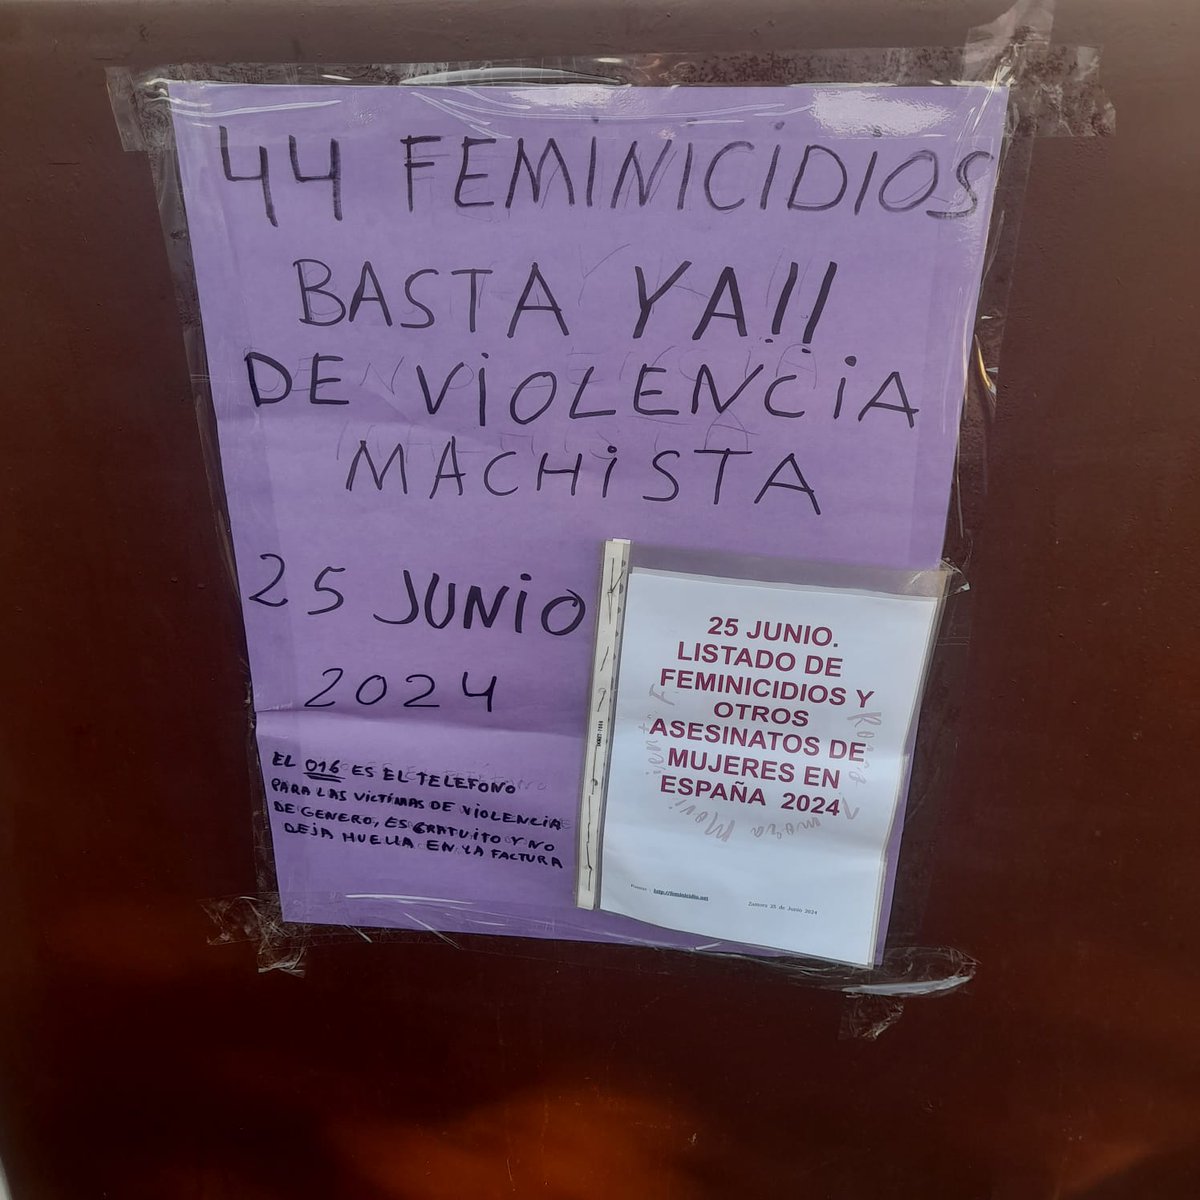 44 FEMINICIDIOS
BASTA YA!!
DE VIOLENCIA
MACHISTA
25 JUNIO
2024
EL 016 ES EL TELEFONO
PARA LAS VICTIMAS DE VIOLENCIA
DE GENERO, ES GRATUITO Y NO
DEJA HUELLA EN LA FACTURA
25 JUNIO.
LISTADO DE
FEMINICIDIOS Y
OTROS
ASESINATOS DE
MUJERES EN
ESPAÑA 2024
http://feminicidio.net
Zamora 25 de Junio 2024